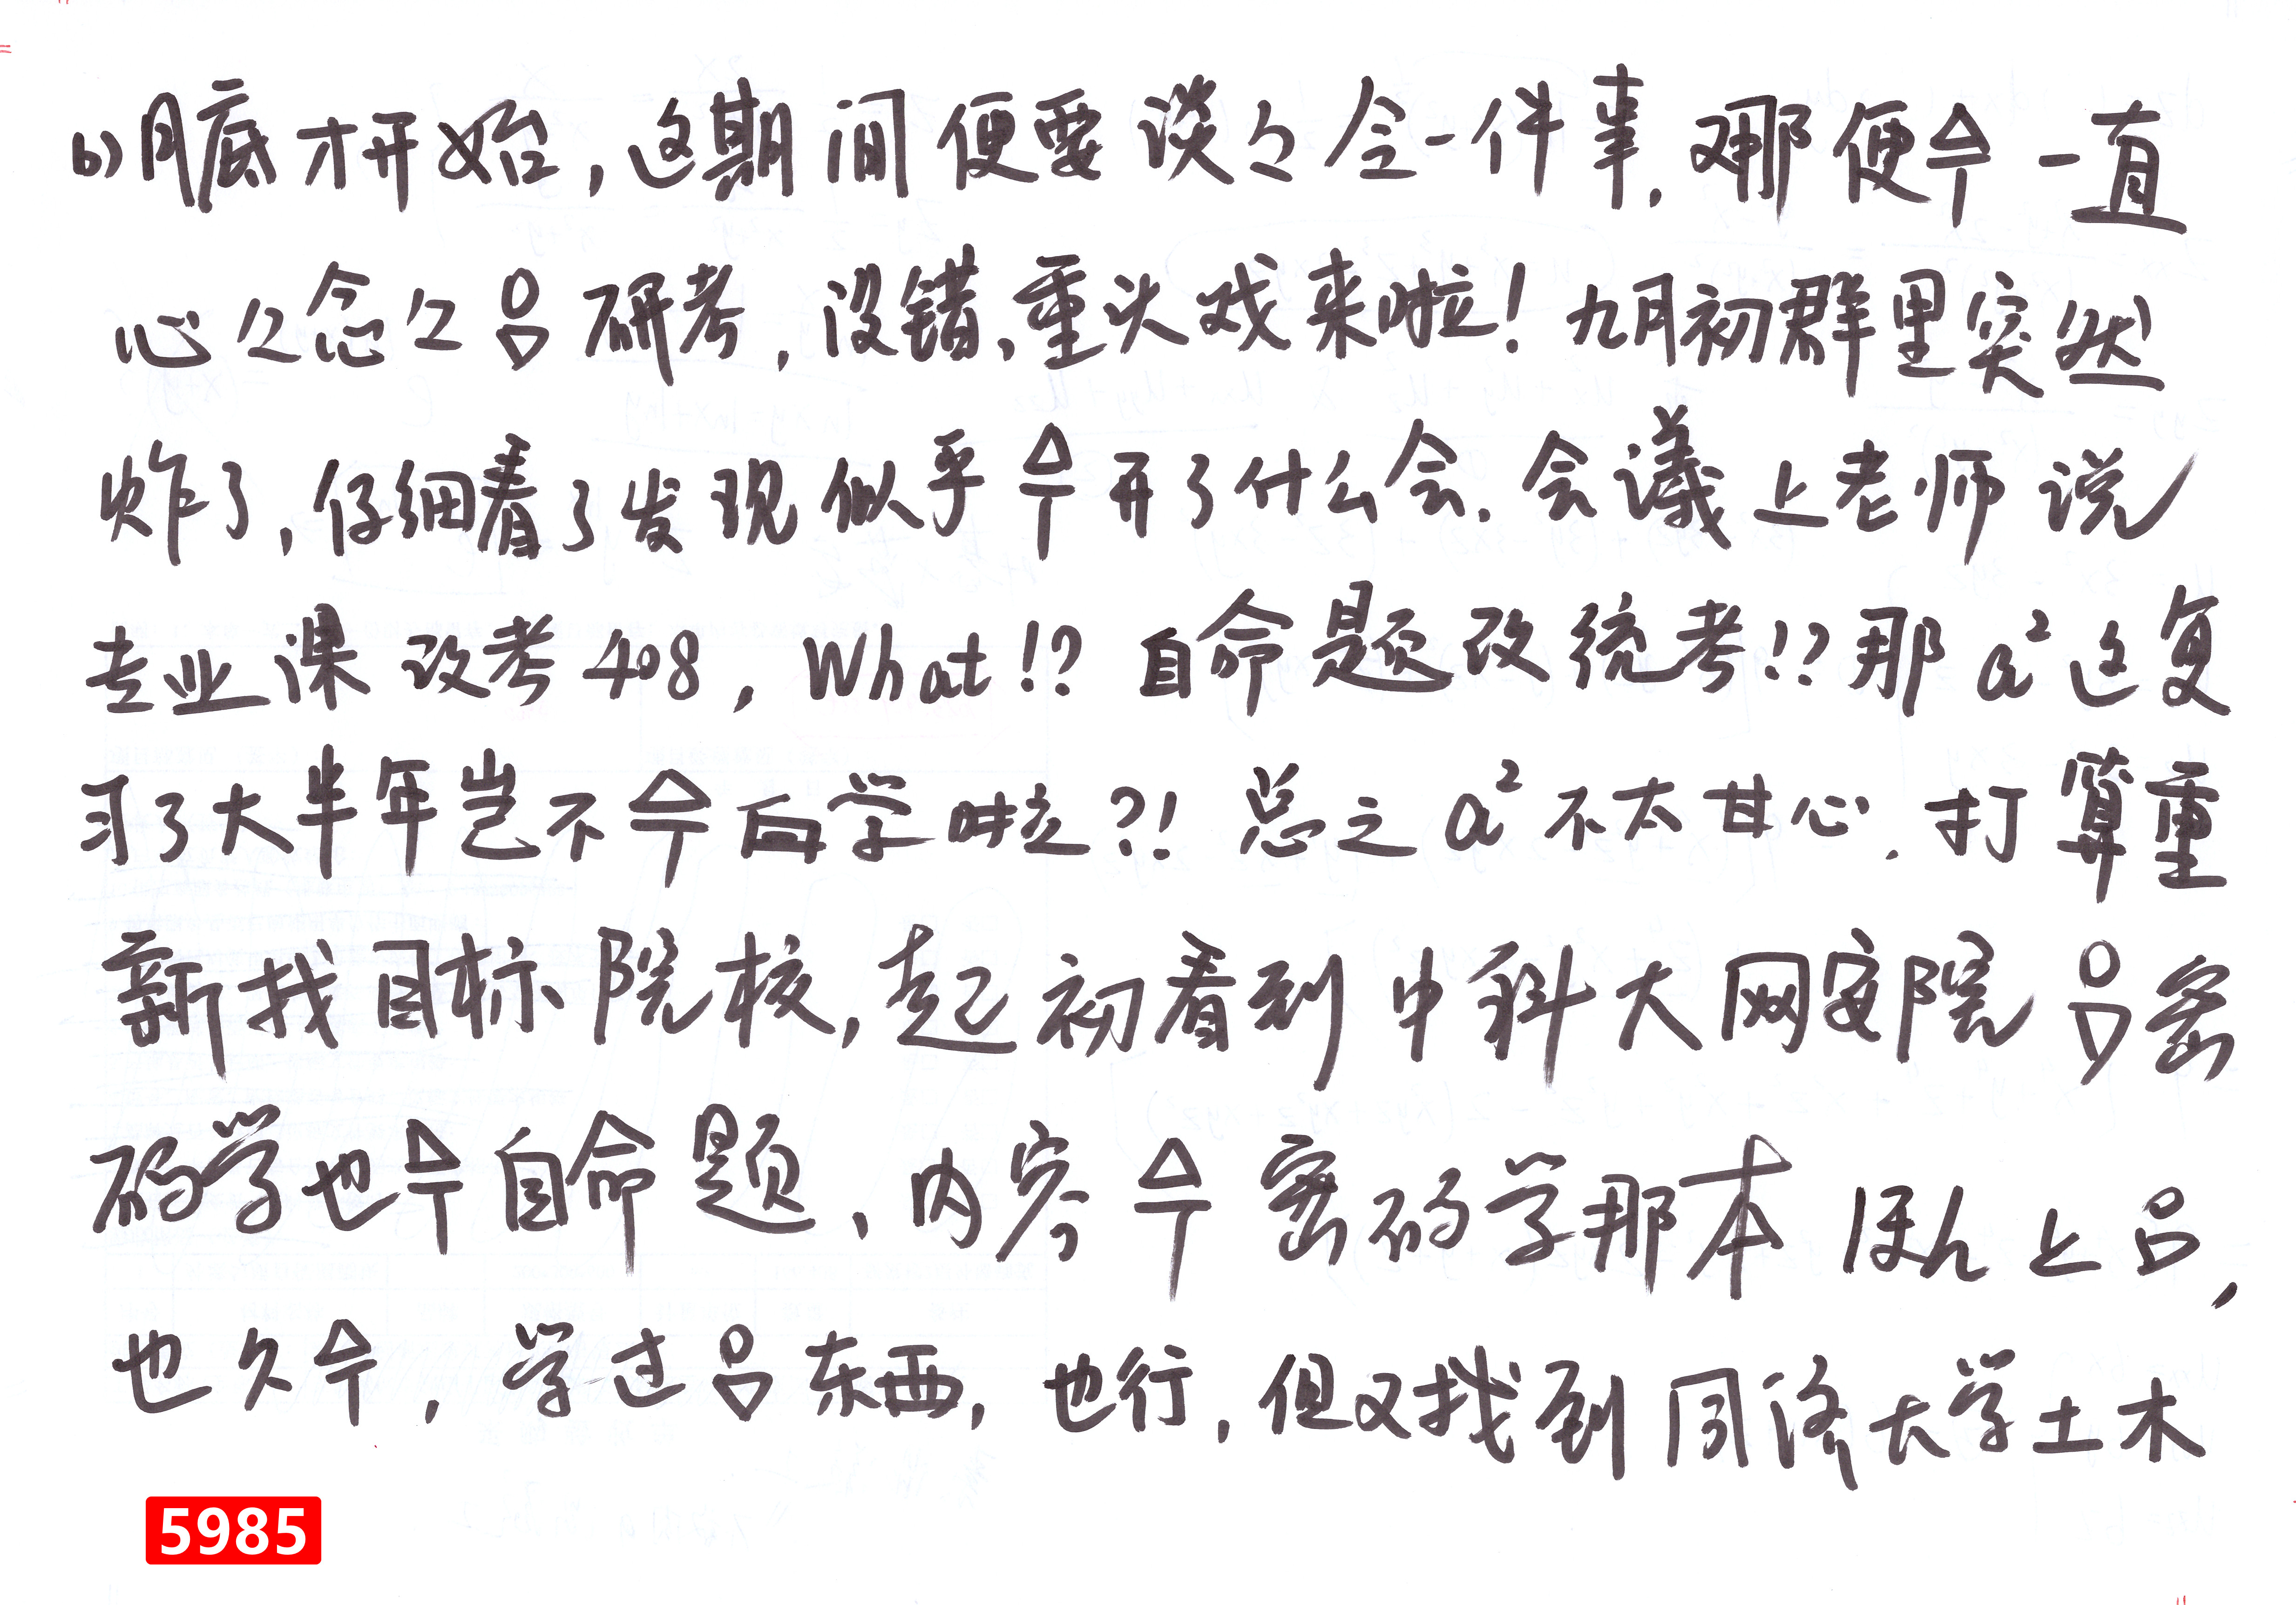 b)月底才开始,这期间便要谈々令一件事.那便是一直
心々念々的研考,没错,重头戏来啦!九月初群里突然
炸了,仔细看了发现似乎是开了什么会.会議上老师说
专业课改考408,What!?自命题改统考!?那a²这复
习了大半年岂不是白学啦?!总之a²不太甘心.打算重
新找目标院校,起初看到中科大网安院的密
码学也是自命题、内容是密码学那本ほん上的,
也是,学过的东西,也行,但又找到同济大学土木
5985